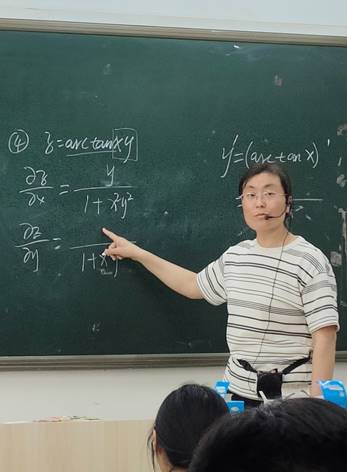 ④ z=arctanxy
∂z/∂x = y/(1+x²y²)
∂z/∂y = /(1+x²y
y'=(arctanx)'